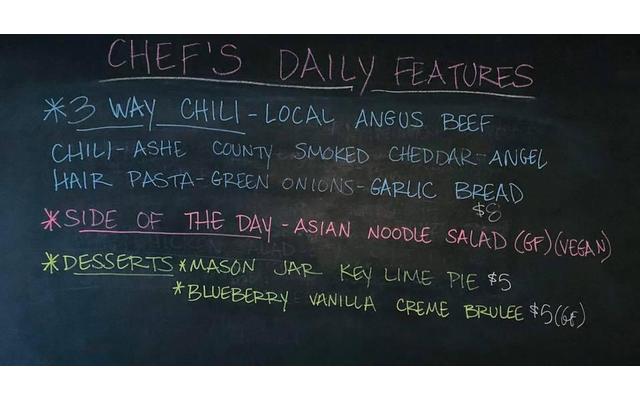 CHEF'S DAILY FEATURES
*3 WAY CHILI - LOCAL ANGUS BEEF
CHILI - ASHE COUNTY SMOKED CHEDDAR - ANGEL
HAIR PASTA - GREEN ONIONS - GARLIC BREAD
$8
*SIDE OF THE DAY - ASIAN NOODLE SALAD (GF) (VEGAN)
*DESSERTS *MASON JAR KEY LIME PIE $5
*BLUEBERRY VANILLA CREME BRULEE $5 (GF)